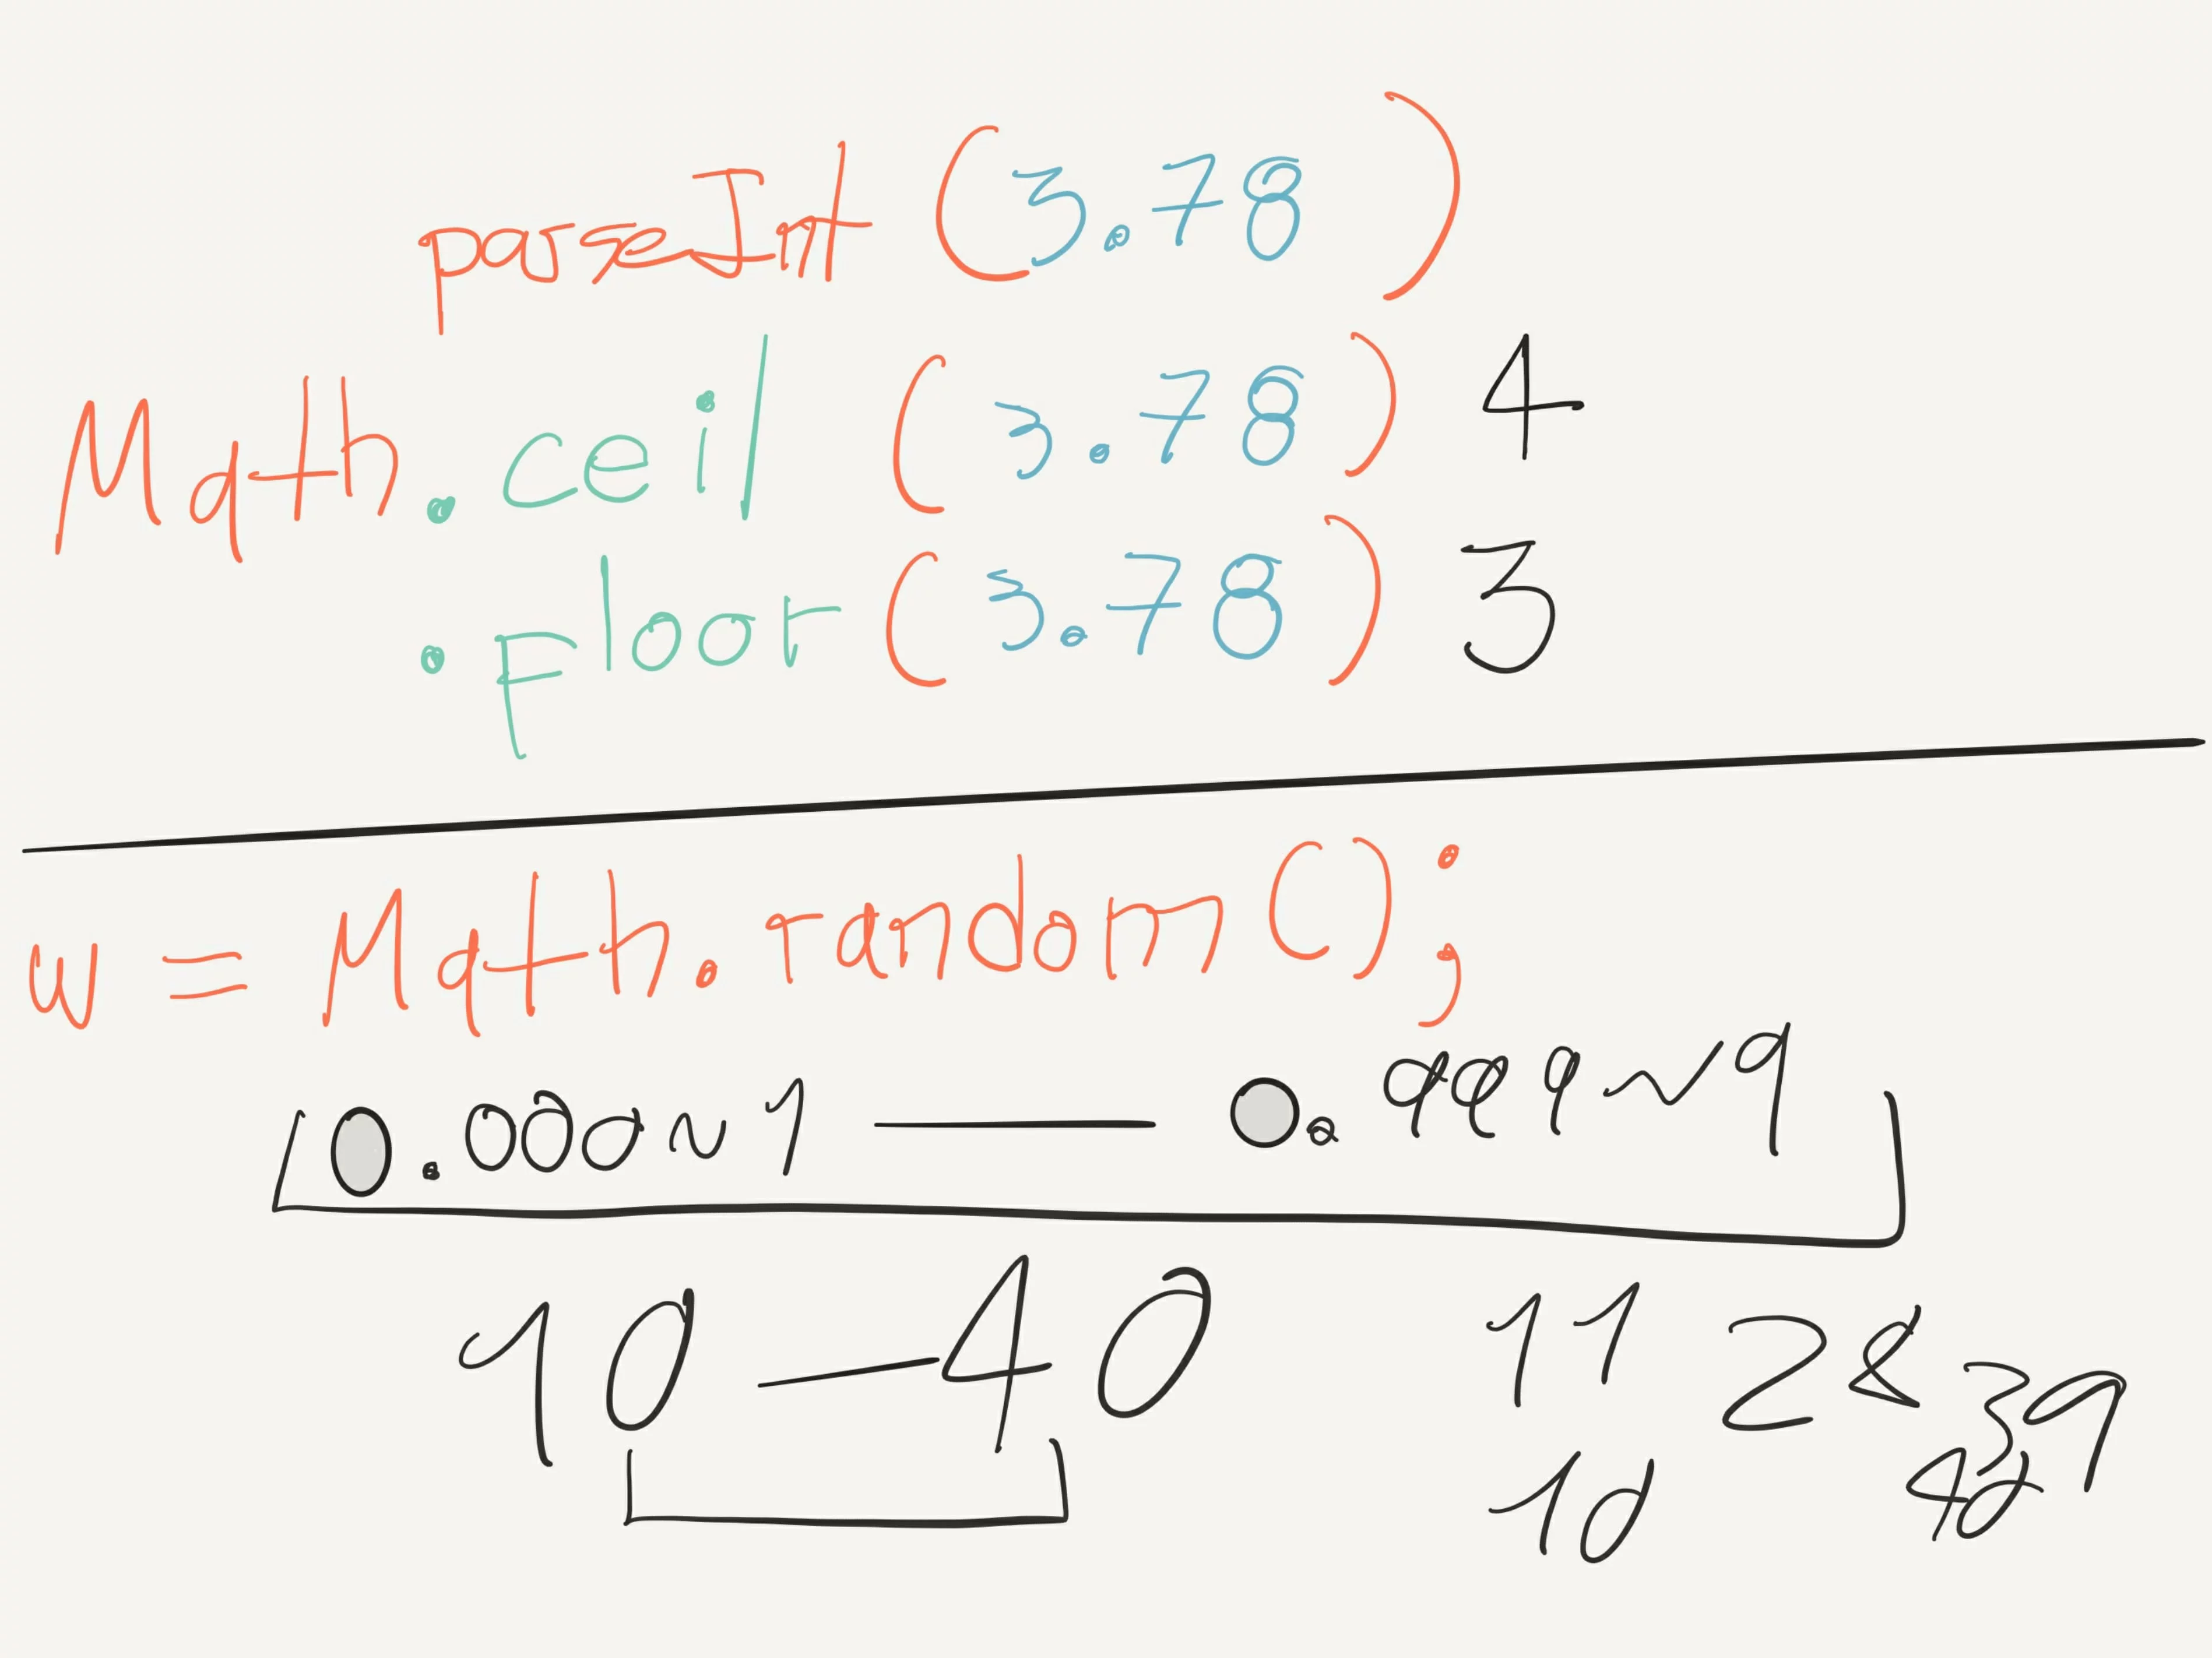 parseInt (3.78)
Math.ceil (3.78) 4
.floor (3.78) 3
w = Math.random();
0.000~1 — 0.999~9
10 — 40 11 28 39
10 40